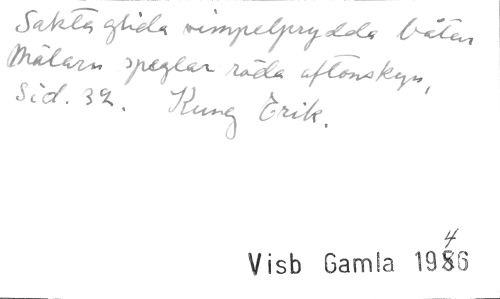 Sakta glida vimpelprydda båten
Mälarn speglar röda aftonskyn,
Sid. 32. Kung Erik.
4
Visb Gamla 1986